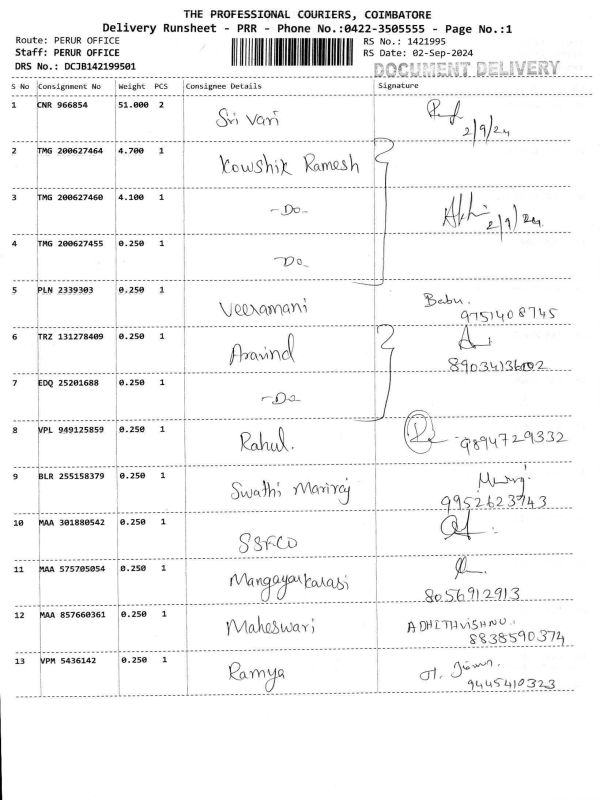 THE PROFESSIONAL COURIERS, COIMBATORE
Delivery Runsheet - PRR - Phone No.:0422-3505555 - Page No.:1
Route: PERUR OFFICE RS No.: 1421995
Staff: PERUR OFFICE RS Date: 02-Sep-2024
DRS No.: DCJB142199501 DOCUMENT DELIVERY
S No Consignment No Weight PCS Consignee Details Signature
1 CNR 966854 51.000 2 Sri Vari 2/9/24
2 TMG 200627464 4.700 1 Kowshik Ramesh
3 TMG 200627460 4.100 1 -Do- 2/9/24
4 TMG 200627455 0.250 1 -Do-
5 PLN 2339303 0.250 1 Veeramani Babu.
9751408745
6 TRZ 131278409 0.250 1 Aravind
7 EDQ 25201688 0.250 1 -Do-
8 VPL 949125859 0.250 1 Rahul. 9894729332
9 BLR 255158379 0.250 1 Swathi Mariraj
9952623743
10 MAA 301880542 0.250 1 SSFCO
11 MAA 575705054 0.250 1 Mangayarkarasi
8056912913
12 MAA 857660361 0.250 1 Maheswari ADHITHVISHNU.
8838590374
13 VPM 5436142 0.250 1 Ramya
9445410323